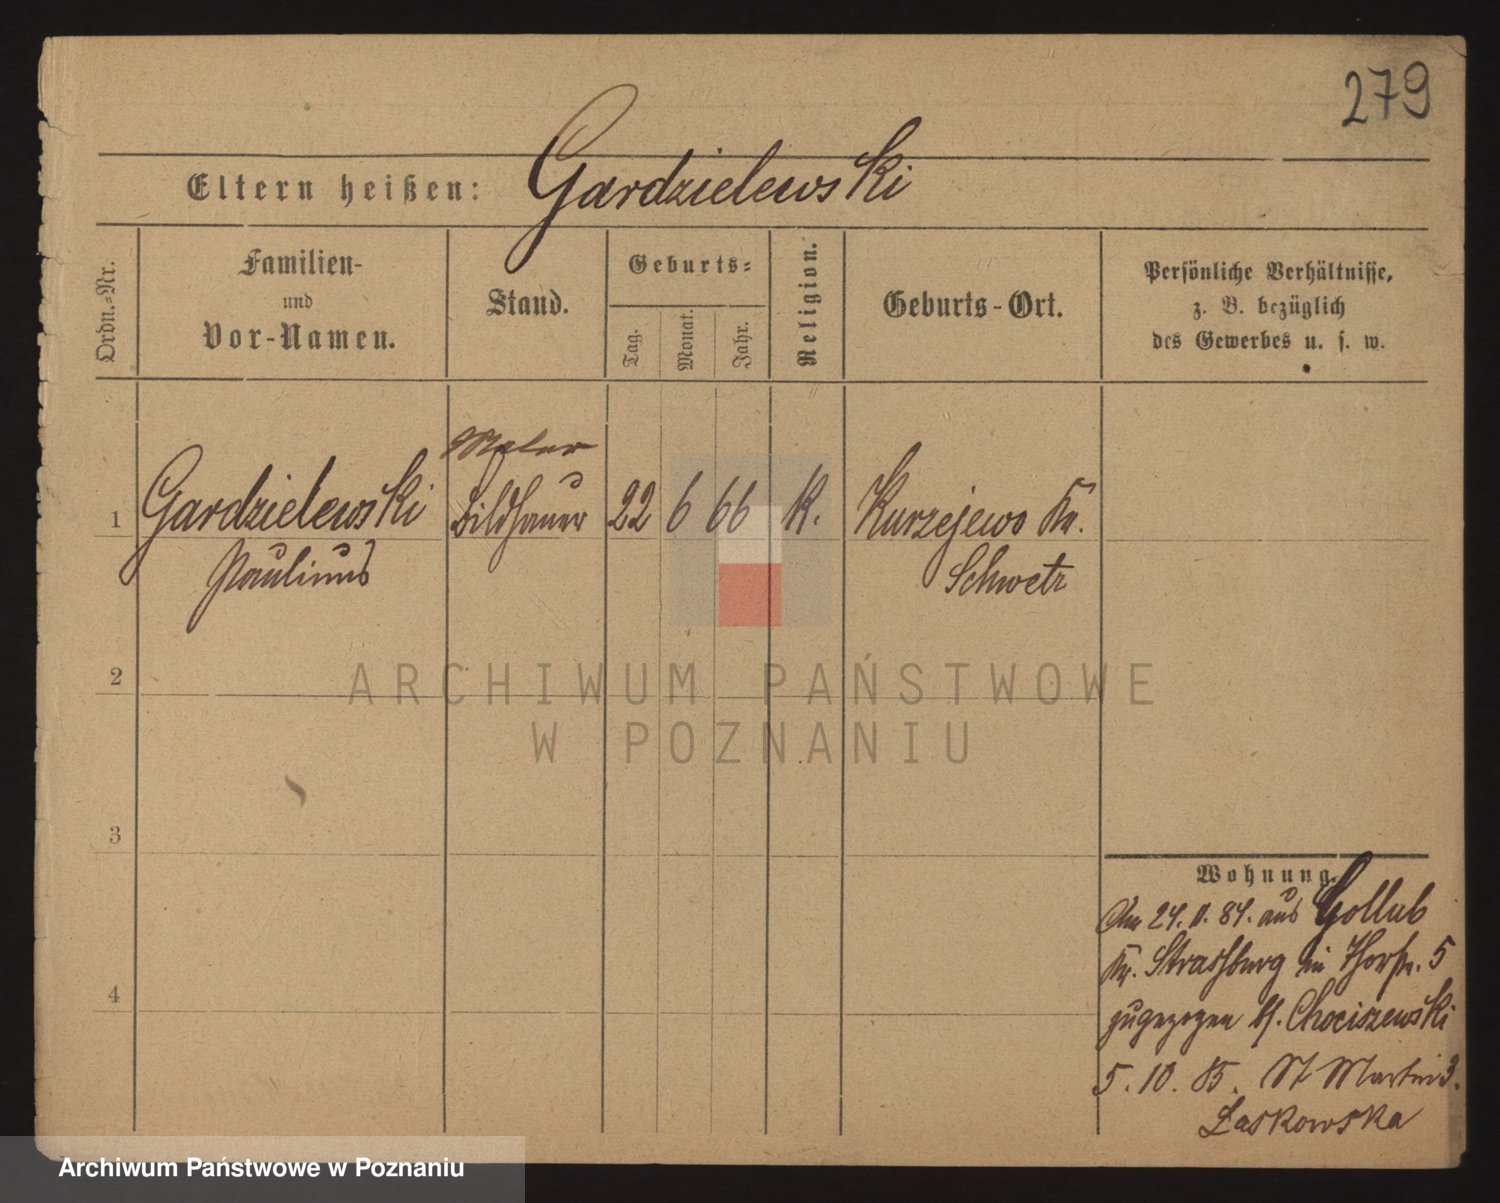 279
Eltern heißen: Gardzielewski
Ordn.-Nr.
Familien-
und
Vor-Namen.
Stand.
Geburts-
Tag.
Monat.
Jahr.
Religion.
Geburts-Ort.
Persönliche Verhältnisse,
z. B. bezüglich
des Gewerbes u. s. w.
Maler
1 Gardzielewski Bildhauer 22 6 66 K. Kurzejewo Kr.
Paulinus Schwetz
2
3
4
Wohnung.
Am 24. 11. 84. aus Gollub
Kr. Strassburg in Thorstr. 5
zugezogen bf. Chociszewski
5. 10. 85. St Martin 3.
Laskowska
ARCHIWUM PAŃSTWOWE
W POZNANIU
Archiwum Państwowe w Poznaniu